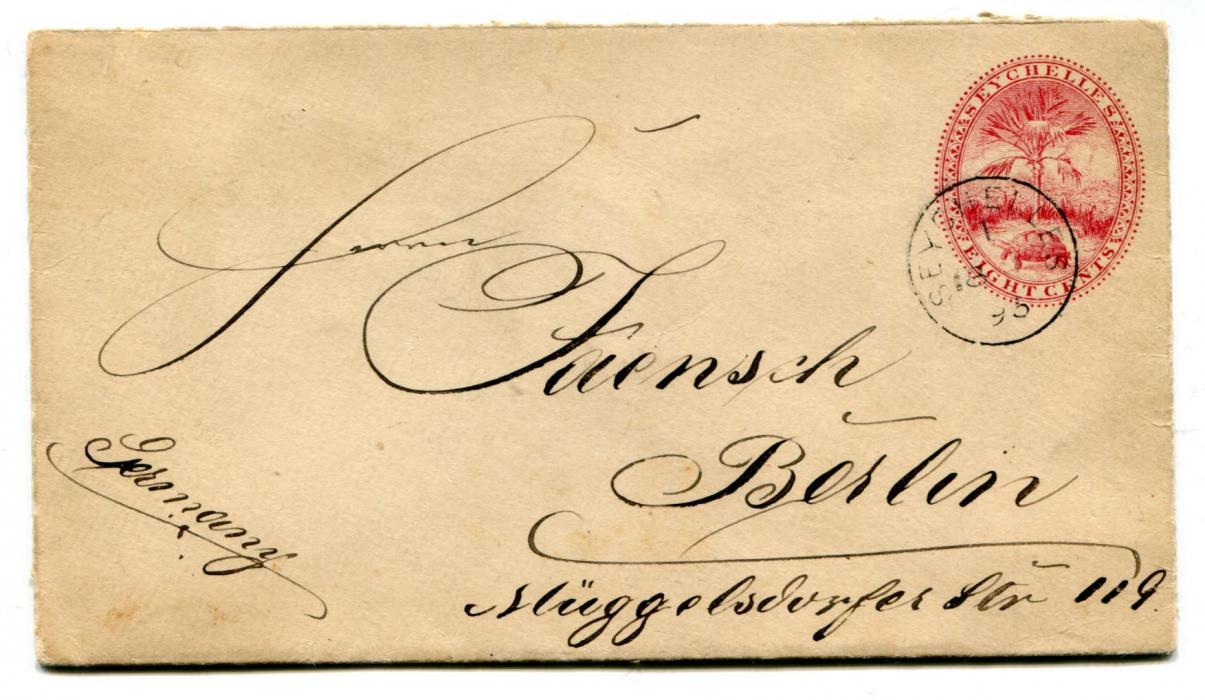 SEYCHELLES
EIGHT CENTS
SEYCHELLES
95
Herrn
Faensch
Berlin
Müggelsdorfer Str 119.
Germany